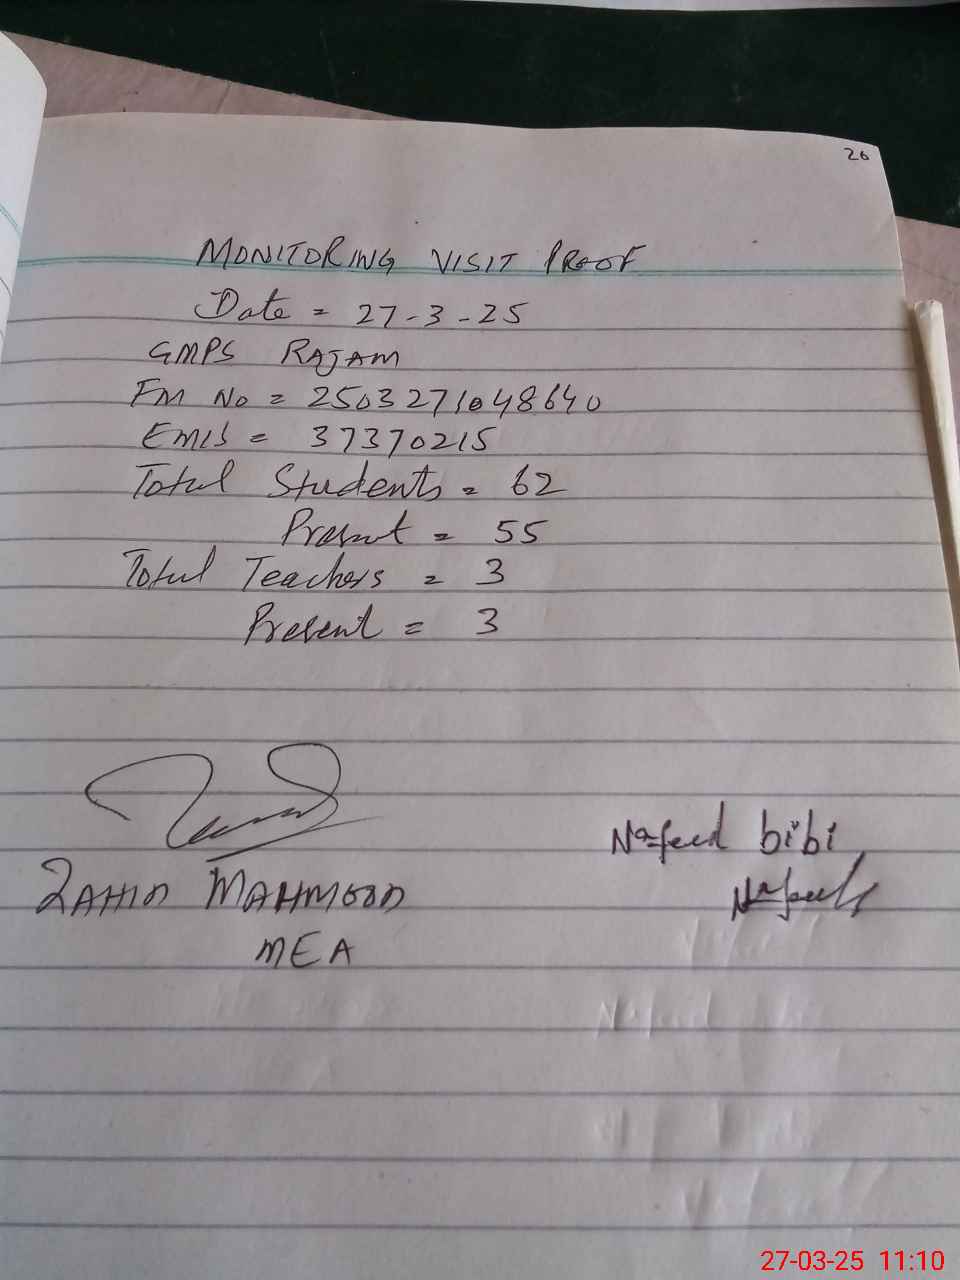 26
MONITORING VISIT PROOF
Date = 27-3-25
GMPS RAJAM
FM No = 2503271048640
EMIS = 37370215
Total Students = 62
Present = 55
Total Teachers = 3
Present = 3
ZAHID MAHMOOD
MEA
Nafeed bibi
27-03-25 11:10